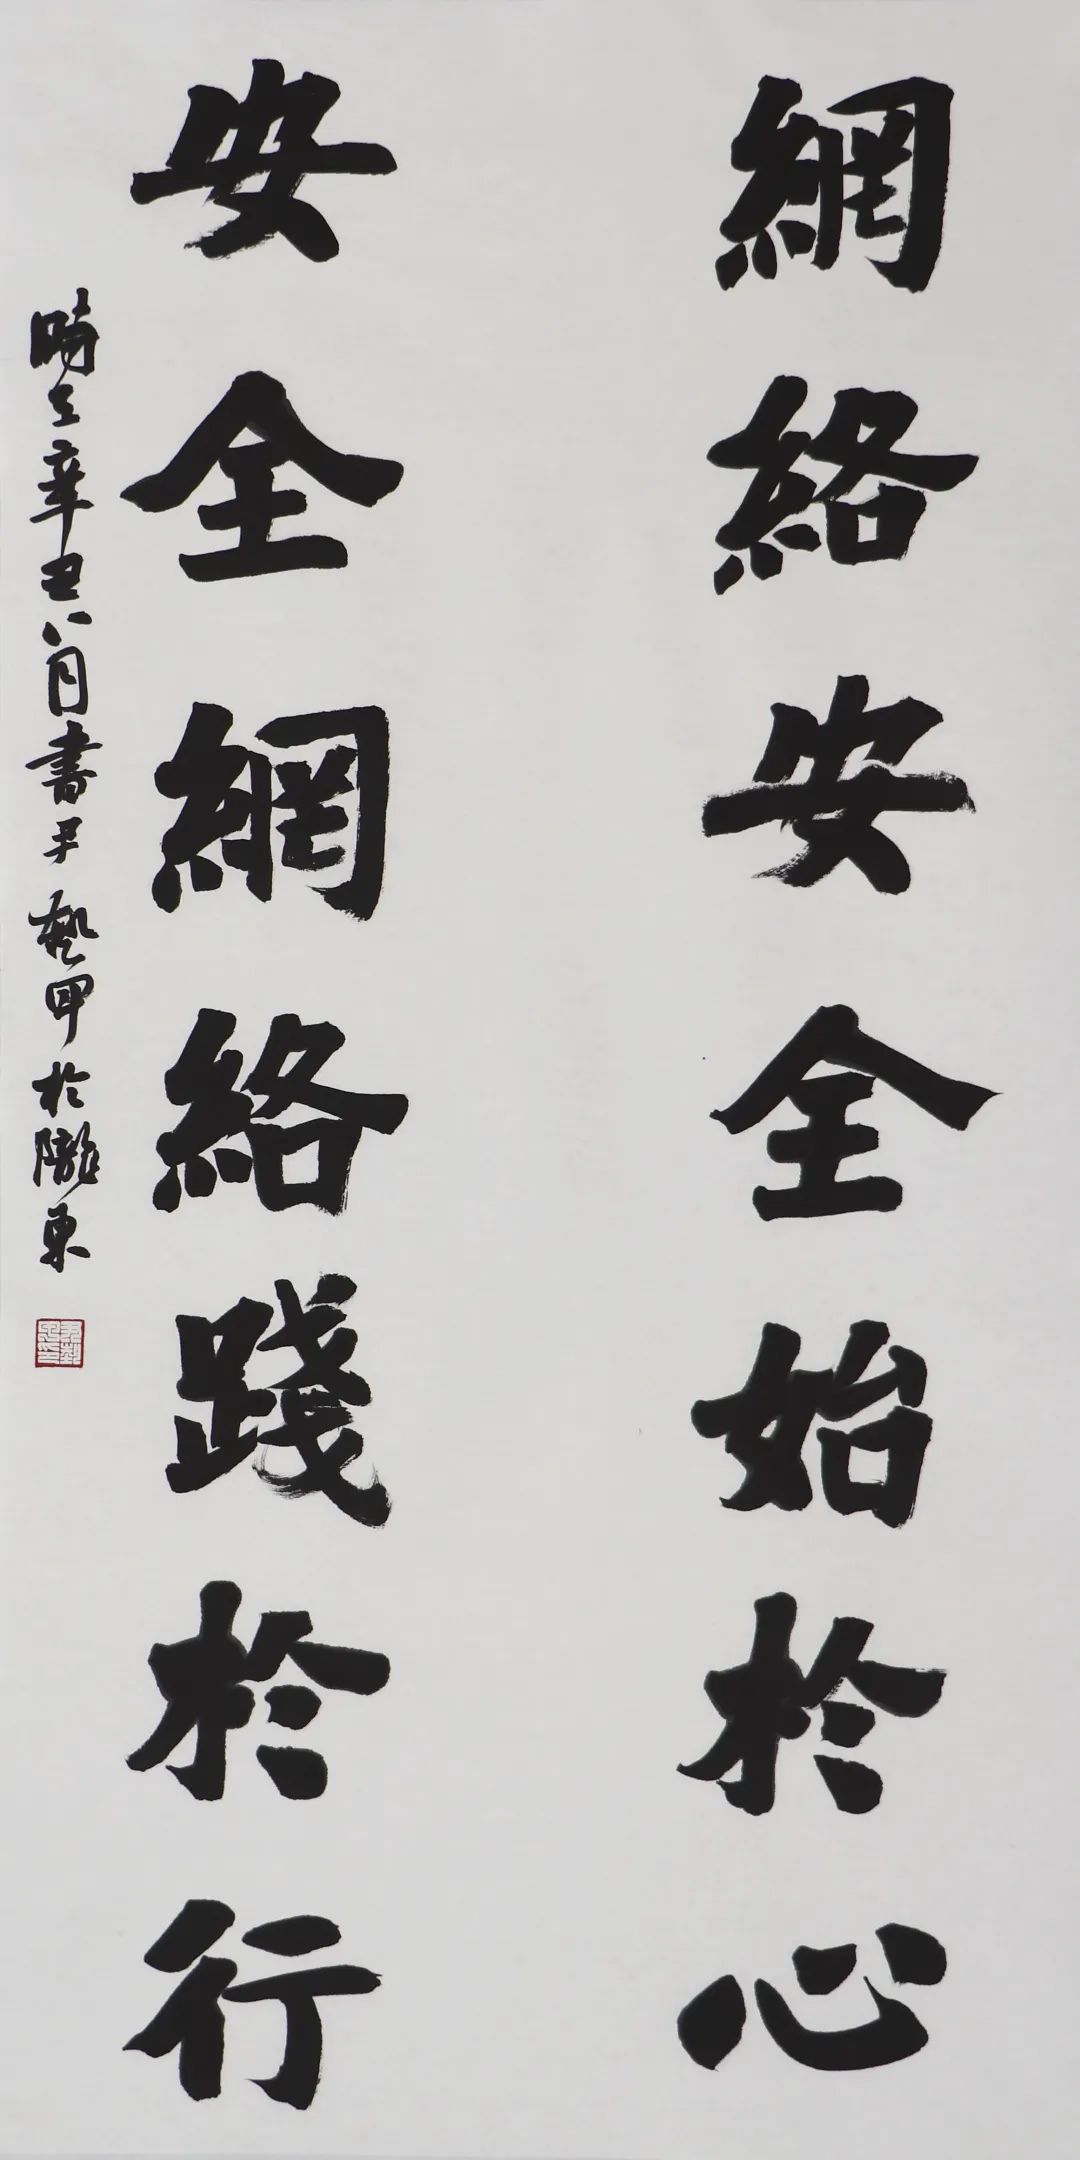 網絡安全始於心
安全網絡踐於行
時在辛丑八月書尹藝甲於隴東